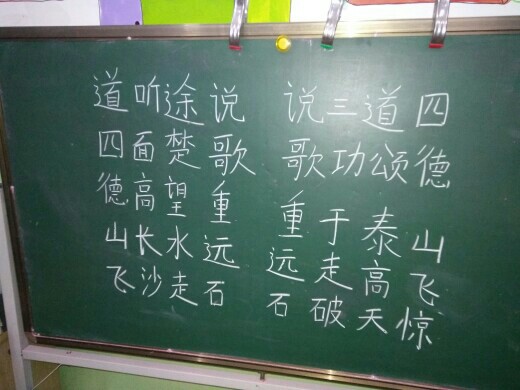 道听途说
四面楚歌
德高望重
山长水远
飞沙走石
说三道四
歌功颂德
重于泰山
远走高飞
石破天惊